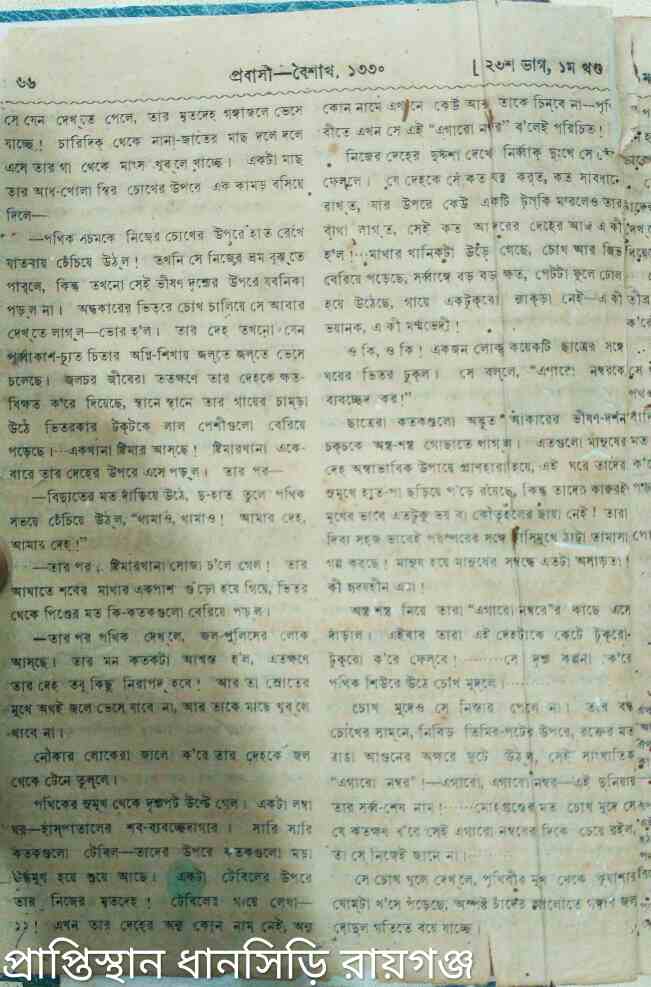 ৬৬
প্রবাসী—বৈশাখ, ১৩৩০
[ ২৩শ ভাগ, ১ম খণ্ড
সে যেন দেখ্‌তে পেলে, তার মৃতদেহ গঙ্গাজলে ভেসে
যাচ্ছে! চারিদিক্‌ থেকে নানা-জাতের মাছ দলে দলে
এসে তার গা থেকে মাংস খুবলে খাচ্ছে। একটা মাছ
তার আধ-খোলা স্থির চোখের উপরে এক কামড় বসিয়ে
দিলে—
—পথিক সচমকে নিজের চোখের উপরে হাত রেখে
যাতনায় চেঁচিয়ে উঠ্‌ল! তখনি সে নিজের ভ্রম বুঝ্‌তে
পার্‌লে, কিন্তু তখনো সেই ভীষণ দৃশ্যের উপরে যবনিকা
পড়্‌ল না। অন্ধকারের ভিতরে চোখ চালিয়ে সে আবার
দেখ্‌তে লাগ্‌ল—ভোর হ'ল। তার দেহ তখনো যেন
পূর্ব্বাকাশ-চ্যুত চিতার অগ্নি-শিখায় জ্বল্‌তে জ্বল্‌তে ভেসে
চলেছে। জলচর জীবেরা ততক্ষণে তার দেহকে ক্ষত-
বিক্ষত ক'রে দিয়েছে, স্থানে স্থানে তার গায়ের চাম্‌ড়া
উঠে ভিতরকার টক্‌টকে লাল পেশীগুলো বেরিয়ে
পড়েছে।···একখানা ষ্টিমার আস্‌ছে! ষ্টিমারখানা একে-
বারে তার দেহের উপরে এসে পড়্‌ল। তার পর—
—বিদ্যুতের মত দাঁড়িয়ে উঠে, দু-হাত তুলে পথিক
সভয়ে চেঁচিয়ে উঠ্‌ল, "থামাও, থামাও! আমার দেহ,
আমার দেহ!"
—তার পর, ষ্টিমারখানা সোজা চ'লে গেল! তার
আঘাতে শবের মাথার একপাশ গুঁড়ো হয়ে গিয়ে, ভিতর
থেকে পিণ্ডের মত কি-কতকগুলো বেরিয়ে পড়্‌ল।
—তার পর পথিক দেখ্‌লে, জল-পুলিসের লোক
আস্‌ছে। তার মন কতকটা আশ্বস্ত হ'ল, এতক্ষণে
তার দেহ তবু কিছু নিরাপদ্‌ হবে! আর তা স্রোতের
মুখে অথই জলে ভেসে যাবে না, আর তাকে মাছে খুবলে
খাবে না।
নৌকার লোকেরা জালে ক'রে তার দেহকে জল
থেকে টেনে তুল্‌লে।
পথিকের সুমুখ থেকে দৃশ্যপট উল্টে গেল। একটা লম্বা
ঘর—হাঁসপাতালের শব-ব্যবচ্ছেদাগার। সারি সারি
কতকগুলো টেবিল—তাদের উপরে কতকগুলো মড়া
ঊর্দ্ধমুখ হয়ে শুয়ে আছে। একটা টেবিলের উপরে
তার নিজের মৃতদেহ! টেবিলের গায়ে লেখা—
১১! এখন তার দেহের অন্য কোন নাম নেই, অন্য
কোন নামে এখানে কেউ আর তাকে চিন্‌বে না—পৃথি
বীতে এখন সে এই "এগারো নম্বর" ব'লেই পরিচিত!
নিজের দেহের দুর্দ্দশা দেখে নির্ব্বাক্‌ দুঃখে সে কেঁদে
ফেল্‌লে। যে দেহকে সে কত যত্ন কর্‌ত, কত সাবধানে
রাখ্‌ত, যার উপরে কেউ একটি টুস্‌কি মার্‌লেও তার
ব্যথা লাগ্‌ত, সেই কত আদরের দেহের আজ এ কী
হ'ল! মাথার খানিকটা উড়ে গেছে, চোখ আর জিভ
বেরিয়ে পড়েছে, সর্ব্বাঙ্গে বড় বড় ক্ষত, পেটটা ফুলে ঢোল
হয়ে উঠেছে, গায়ে একটুক্‌রো ন্যাক্‌ড়া নেই—এ কী
ভয়ানক, এ কী মর্ম্মভেদী!
ও কি, ও কি! একজন লোক কয়েকটি ছাত্রের সঙ্গে
ঘরের ভিতর ঢুক্‌ল। সে বল্‌লে, "এগারো নম্বরকে
ব্যবচ্ছেদ কর!"
ছাত্রেরা কতকগুলো অদ্ভুত আকারের ভীষণ-দর্শন
চক্‌চকে অস্ত্র-শস্ত্র গোছাতে লাগ্‌ল। এতগুলো মানুষের
দেহ অস্বাভাবিক উপায়ে প্রাণহারা হয়ে, এই ঘরে তাদের
সুমুখে হাত-পা ছড়িয়ে প'ড়ে রয়েছে, কিন্তু তাদের কারুরই
মুখের ভাবে এতটুকু ভয় বা কৌতূহলের ছায়া নেই! তারা
দিব্য সহজ ভাবেই পরস্পরের সঙ্গে হাসিমুখে ঠাট্টা তামাসা
গল্প কর্‌ছে! মানুষ হয়ে মানুষের সম্বন্ধে এতটা অসাড়তা!
কী হৃদয়হীন এরা!
অস্ত্র শস্ত্র নিয়ে তারা "এগারো নম্বরে"র কাছে এসে
দাঁড়াল। এইবার তারা এই দেহটাকে কেটে টুক্‌রো-
টুক্‌রো ক'রে ফেল্‌বে!·······সে দৃশ্য কল্পনা ক'রে
পথিক শিউরে উঠে চোখ মুদ্‌লে।
চোখ মুদেও সে নিস্তার পেলে না। তার বন্ধ
চোখের সামনে, নিবিড় তিমির-পটের উপরে, রক্তের মত
রাঙা আগুনের অক্ষরে ফুটে উঠ্‌ল, সেই সাংঘাতিক
"এগারো নম্বর"!—এগারো, এগারো নম্বর—এই দুনিয়ায়
তার সর্ব্ব-শেষ নাম!·····মোহগ্রস্তের মত চোখ মুদে সে
যে কতক্ষণ ধ'রে সেই এগারো নম্বরের দিকে চেয়ে রইল,
তা সে নিজেই জানে না।
সে চোখ খুলে দেখ্‌লে, পৃথিবীর মুখ থেকে কুয়াশার
ঘোমটা খ'সে পড়েছে, অস্পষ্ট চাঁদের আলোতে গঙ্গার জল
দোদুল গতিতে বয়ে যাচ্ছে।
প্রাপ্তিস্থান ধানসিড়ি রায়গঞ্জ